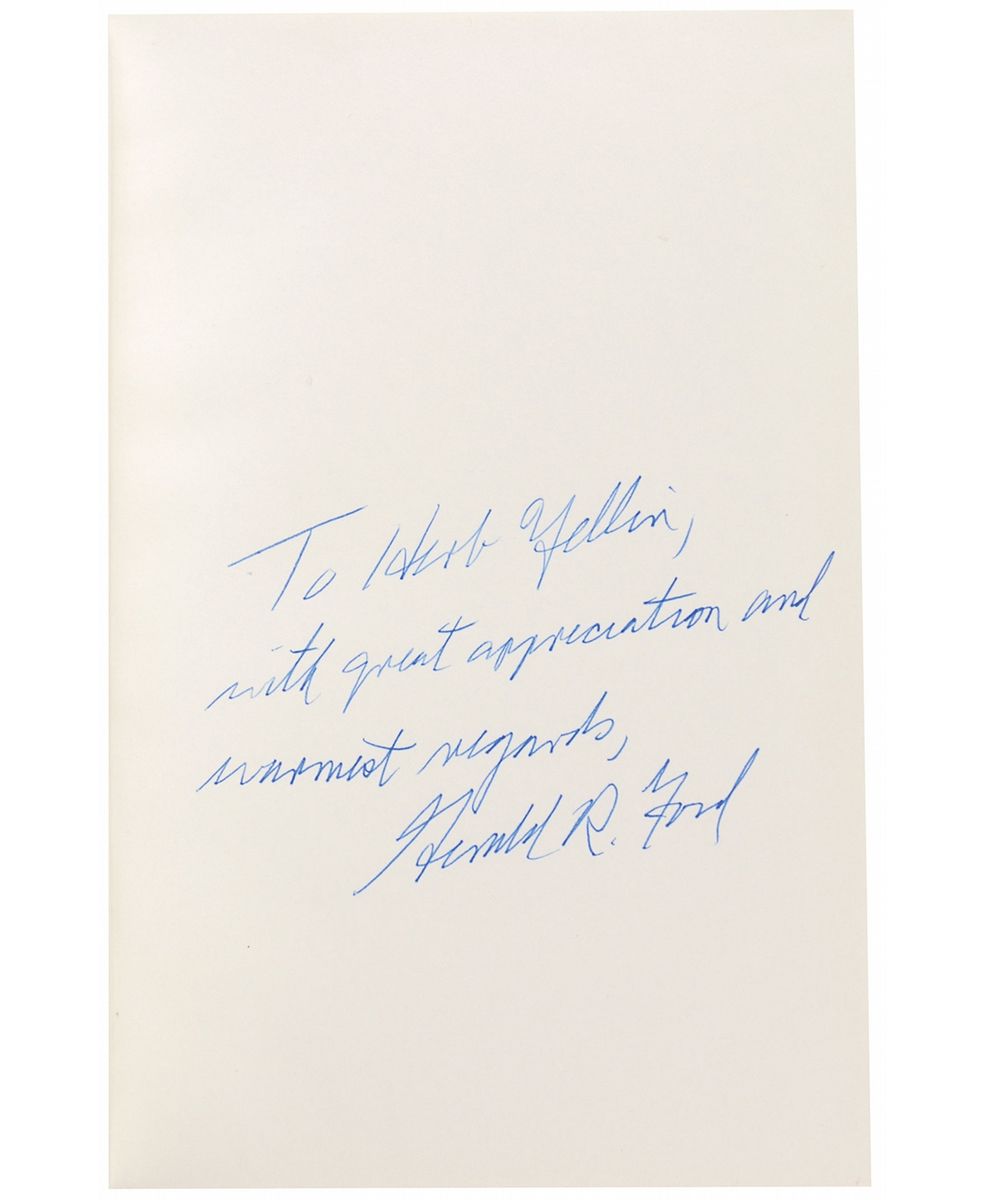 To Herb Yellin,
with great appreciation and
warmest regards,
Gerald R. Ford